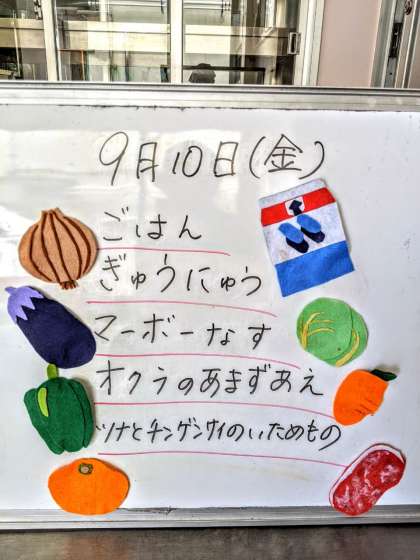 9月10日(金)
ごはん
ぎゅうにゅう
マーボーなす
オクラのあまずあえ
ツナとチンゲンサイのいためもの